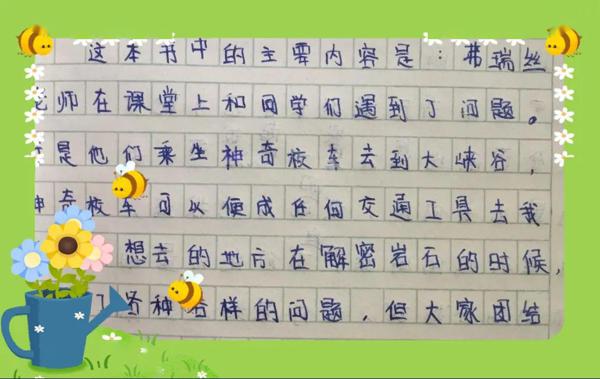 这本书中的主要内容是：弗瑞丝
老师在课堂上和同学们遇到了问题。
是他们乘坐神奇校车去到大峡谷，
神奇校车可以便成任何交通工具去我
想去的地方在解密岩石的时候，
了各种各样的问题，但大家团结